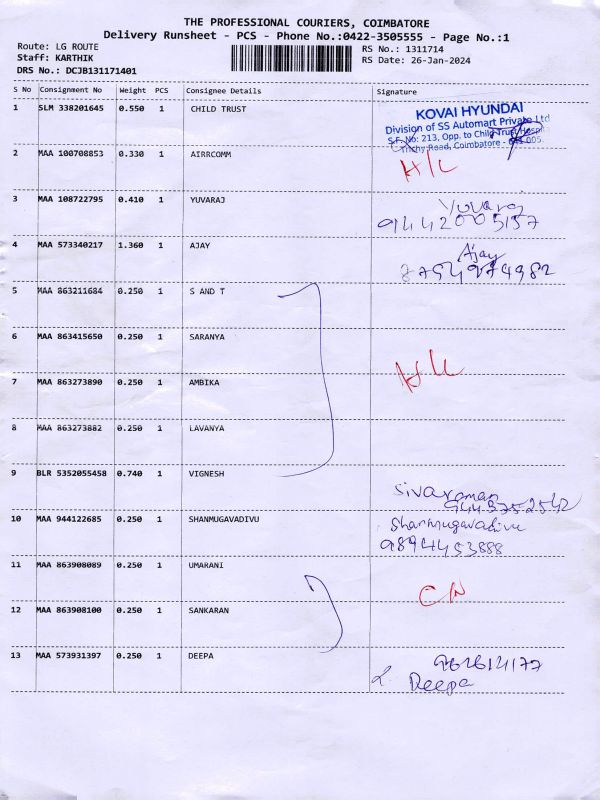 THE PROFESSIONAL COURIERS, COIMBATORE
Delivery Runsheet - PCS - Phone No.:0422-3505555 - Page No.:1
Route: LG ROUTE
Staff: KARTHIK
DRS No.: DCJB131171401
RS No.: 1311714
RS Date: 26-Jan-2024
S No Consignment No Weight PCS Consignee Details Signature
1 SLM 338201645 0.550 1 CHILD TRUST
KOVAI HYUNDAI
Division of SS Automart Private Ltd
S.F. No: 213, Opp. to Child Trust Hospital
Trichy Road, Coimbatore - 641 005.
2 MAA 100708853 0.330 1 AIRRCOMM
H/L
3 MAA 108722795 0.410 1 YUVARAJ
Yuvaraj
9442005157
4 MAA 573340217 1.360 1 AJAY
Ajay
8754974982
5 MAA 863211684 0.250 1 S AND T
6 MAA 863415650 0.250 1 SARANYA
7 MAA 863273890 0.250 1 AMBIKA
H/L
8 MAA 863273882 0.250 1 LAVANYA
9 BLR 5352055458 0.740 1 VIGNESH
Sivaraman
10 MAA 944122685 0.250 1 SHANMUGAVADIVU
Shanmugavadivu
9894453888
11 MAA 863908089 0.250 1 UMARANI
12 MAA 863908100 0.250 1 SANKARAN
13 MAA 573931397 0.250 1 DEEPA
Deepa